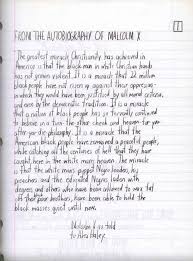 1
FROM THE AUTOBIOGRAPHY OF MALCOLM X
The greatest miracle Christianity has achieved in
America is that the black man in white Christian hands
has not grown violent. It is a miracle that 22 million
black people have not risen up against their oppressors-
in which they would have been justified by all moral criteria,
and even by the democratic tradition. It is a miracle
that a nation of black people has so fervently continued
to believe in a turn-the-other-cheek and heaven-for-you-
after-you-die philosophy. It is a miracle that the
American black people have remained a peaceful people,
while catching all the centuries of hell that they have
caught here in the white man's heaven. The miracle
is that the white man's puppet Negro leaders, his
preachers and the educated Negroes laden with
degrees and others who have been allowed to wax fat
off their poor brothers, have been able to hold the
black masses quiet until now.
Malcolm X as told
to Alex Haley.